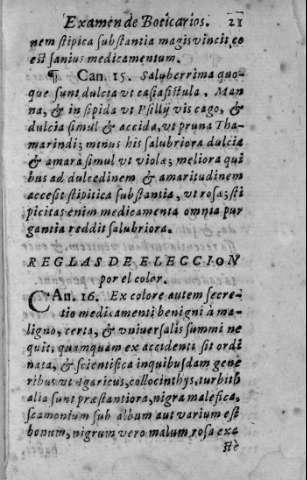 Examen de Boticarios. 21
nem stipica substantia magis vincit, eo
est sanius medicamentum.
¶ Can. 15. Saluberrima quo-
que sunt dulcia vt casiafistula, Man
na, & in sipida vt Psillij viscago, &
dulcia simul & accida, vt pruna Tha-
marindi; minus his salubriora dulcia
& amara simul vt violæ; meliora qui
bus ad dulcedinem & amaritudinem
accesit stipitica substantia, vt rosæ; sti
picitas enim medicamenta omnia pur
gantia reddit salubriora.
REGLAS DE ELECCION
por el color.
CAn. 16. Ex colore autem secre-
tio medicamenti benigni à ma-
ligno, certa, & vniuersalis summi ne
quit, quamquam ex accidenti sit ordi
nata, & scientifica in quibusdam gene
ribus vt Agaricus, collocinthys, turbith
alia sunt præstantiora, nigra malefica,
scamonium sub album aut varium est
bonum, nigrum vero malum rosa exa